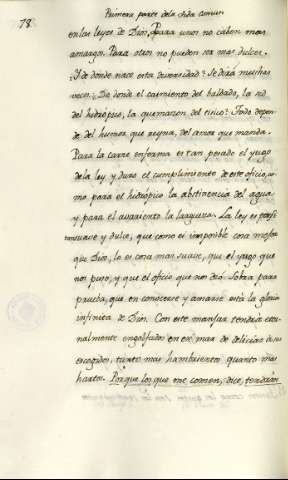 78.
Primera parte de la vida comun
en las leyes de Dios, Para unos no caben mas
amargos. Para otros no pueden ser mas dulces.
Y de donde nace esta diversidad? Se dirá muchas
veces: De donde el caimiento del baldado, la sed
del hidrópico, la quemazon del etico? Todo depen-
de del humor que reyna, del amor que manda.
Para la carne enferma es tan pesado el yugo
de la ley y duro el cumplimiento de este oficio, co-
mo para el hidropico la abstinencia del agua
y para el avariento la largueza. La ley es
suave y dulce, que como es imposible cosa mejor
que Dios, lo es cosa mas suave, que el yugo que
nos puso, y que el oficio que nos dió. Sobra para
prueba, que en conocerse y amarse está la gloria
infinita de Dios. Con este manjar tendrá eter-
nalmente engolfados en ese mar de delicias á sus
escogidos, tanto mas hambrientos quanto mas
hartos. Porque los que me comen, dice, tendrán